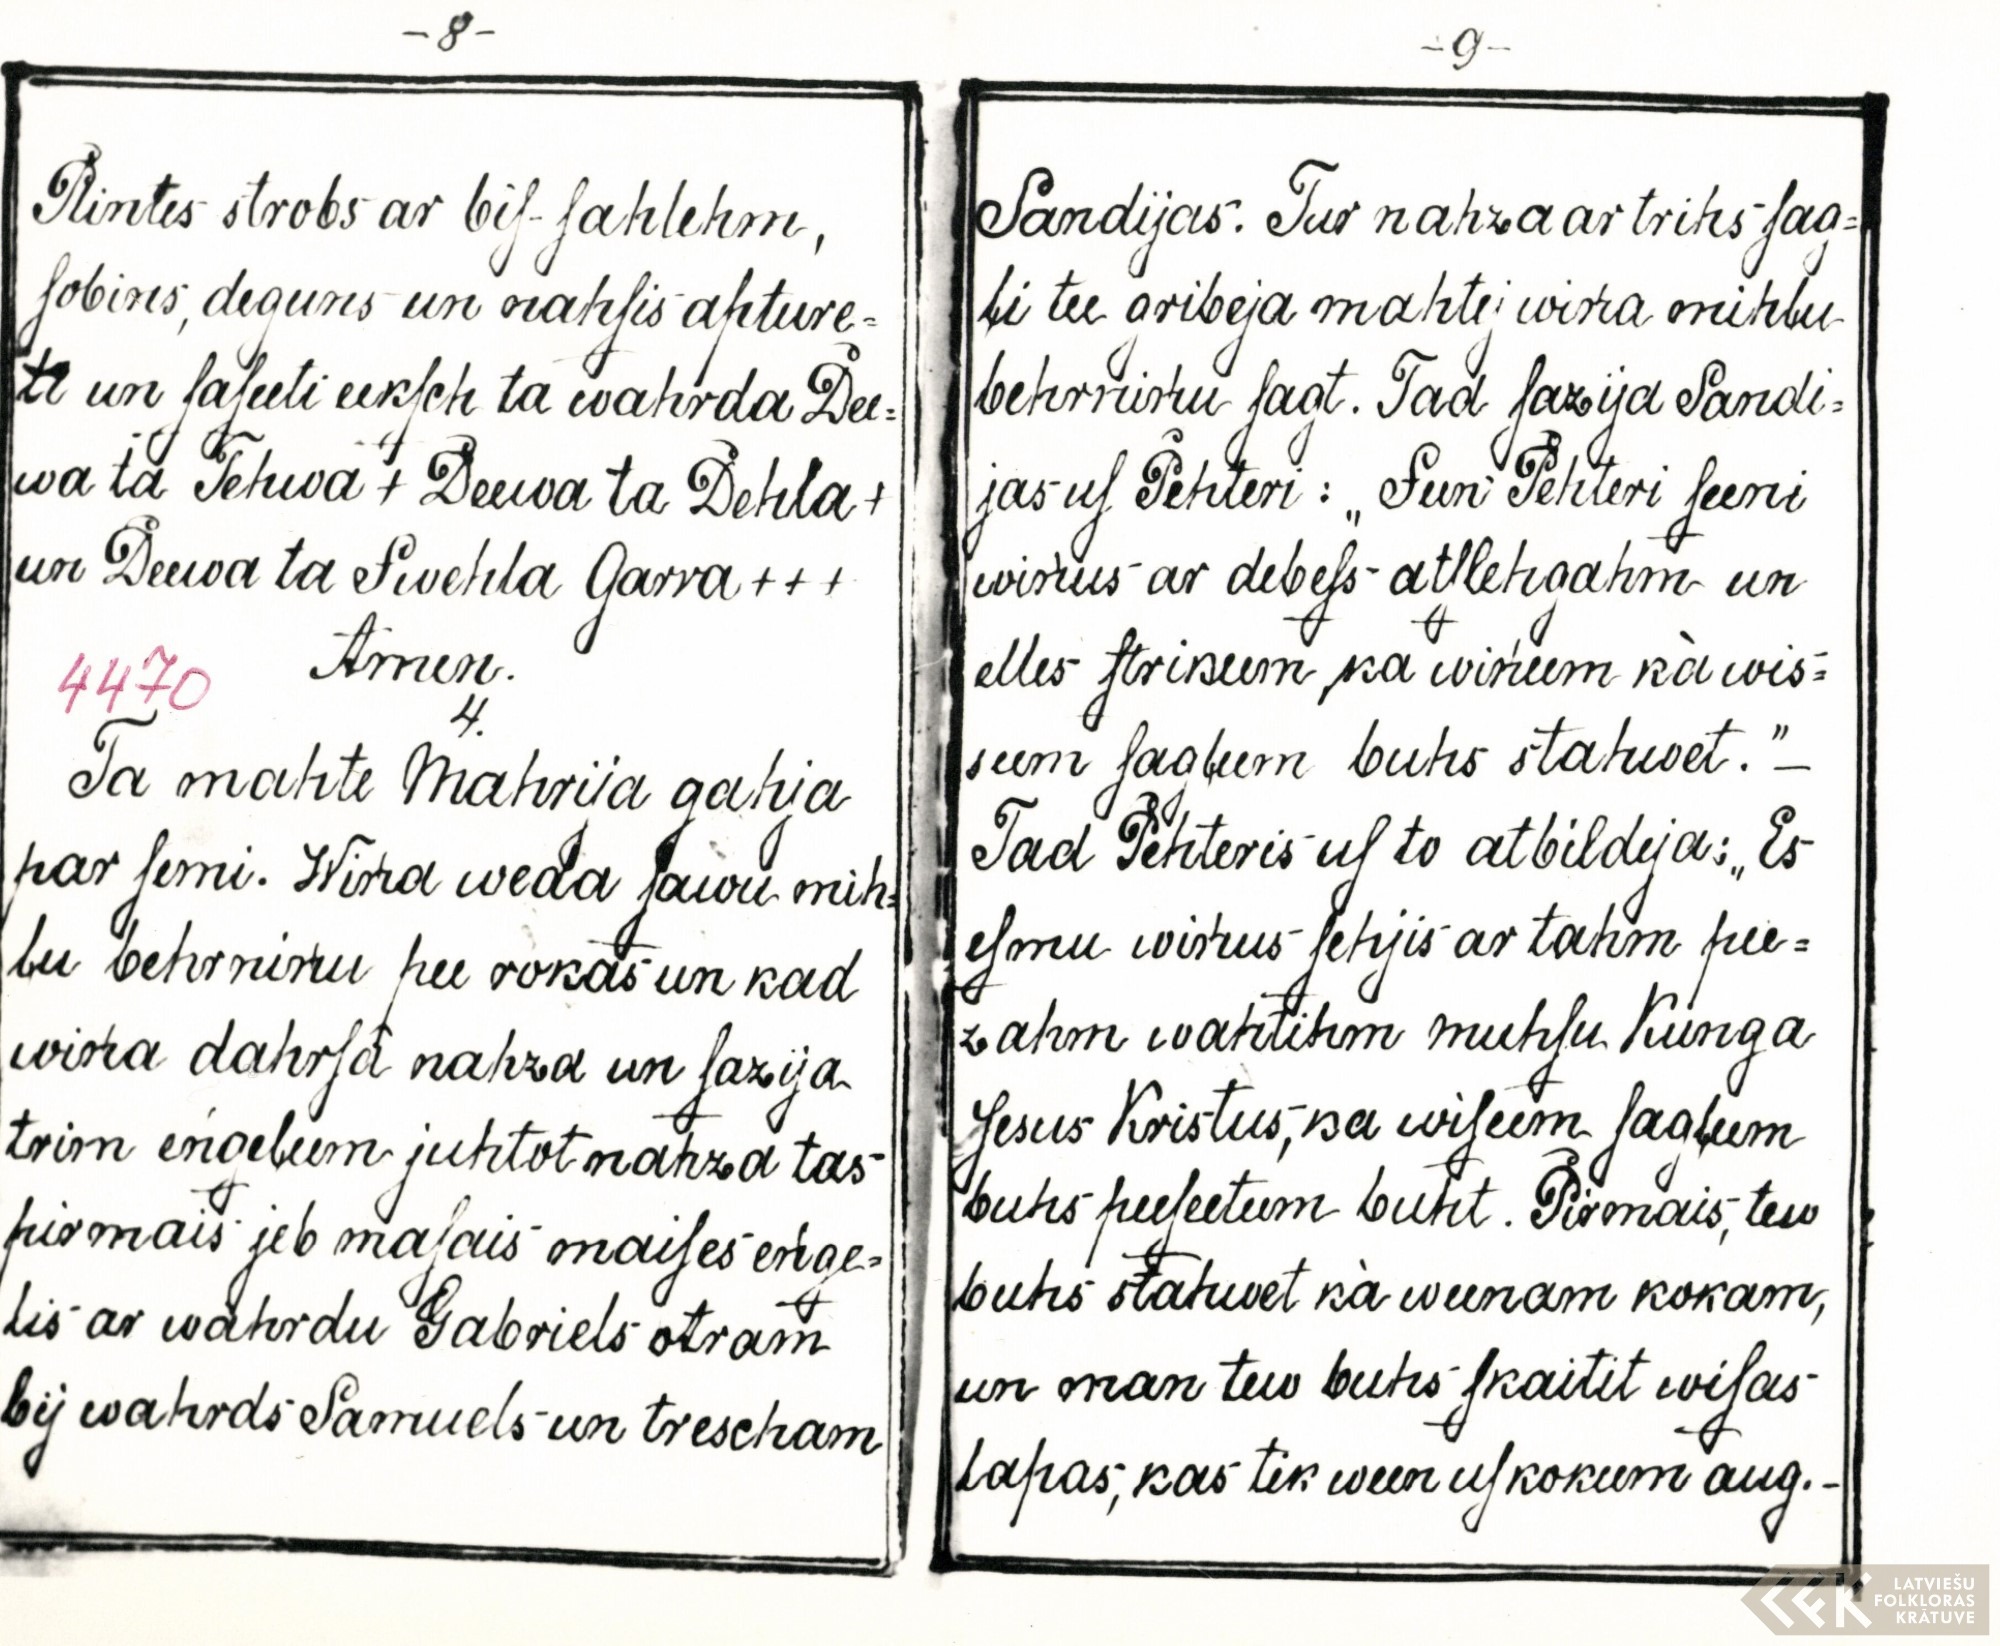 -8-
Plintes strobs ar biſ-ſahlehm,
ſobins, deguns un nahſis apture-
ti un ſaſeeti eekſch ta wahrda Dee=
wa ta Tehwa + Deewa ta Dehla +
un Deewa ta Swehla Garra + + +
Amen.
4470
4.
Ta mahte Mahrija gahja
par ſemi. Wiņa weda ſawu mih=
ļu behrniņu pee rokas un kad
wiņa dahrſâ nahza un ſazija
trim eņgeļeem juhtot nahza tas
pirmais jeb maſais maiſes eņge=
lis ar wahrdu Gabriels otram
bij wahrds Samuels un trescham
-9-
Sandijas. Tur nahza ar trihs ſag=
ļi tee gribeja mahtei wiņa mihļu
behrniņu ſagt. Tad ſazija Sandi=
jas uſ Pehteri: „Sun Pehteri ſeeni
wiņus ar debeſs atſlehgahm un
elles ſtrikeem, ka wiņeem kà wis=
seem ſagļeem buhs stahwet.” –
Tad Pehteris uſ to atbildeja: „Es
eſmu wiņus ſehjis ar tahm pee=
zahm wahtihm muhſu Kunga
Jesus Kristus, ka wiſeem ſagļeem
buhs peeſeeteem buht. Pirmais, tew
buhs stahwet kà weenam kokam,
un man tew buhs ſkaitit wiſas
lapas, kas tik ween uſ kokeem aug. –
LATVIEŠU
FOLKLORAS
KRĀTUVE